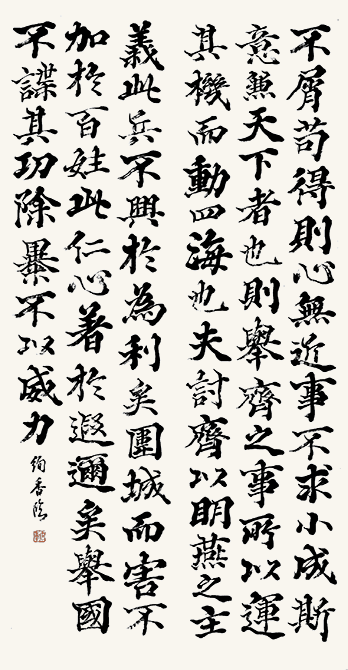 不屑苟得則心無近事不求小成斯
意兼天下者也則舉齊之事所以運
其機而動四海也夫討齊以明燕之主
義此兵不興於為利矣圍城而害不
加於百姓此仁心著於遐邇矣舉國
不謀其功除暴不以威力
絢香臨